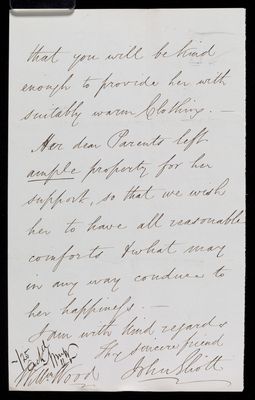 that you will be kind
enough to provide her with
suitably warm Clothing. —
Her dear Parents left
ample property for her
support, so that we wish
her to have all reasonable
comforts & what may
in any way conduce to
her happiness. —
I am with kind regards
Thy sincere friend
John Eliott
Wm Wood